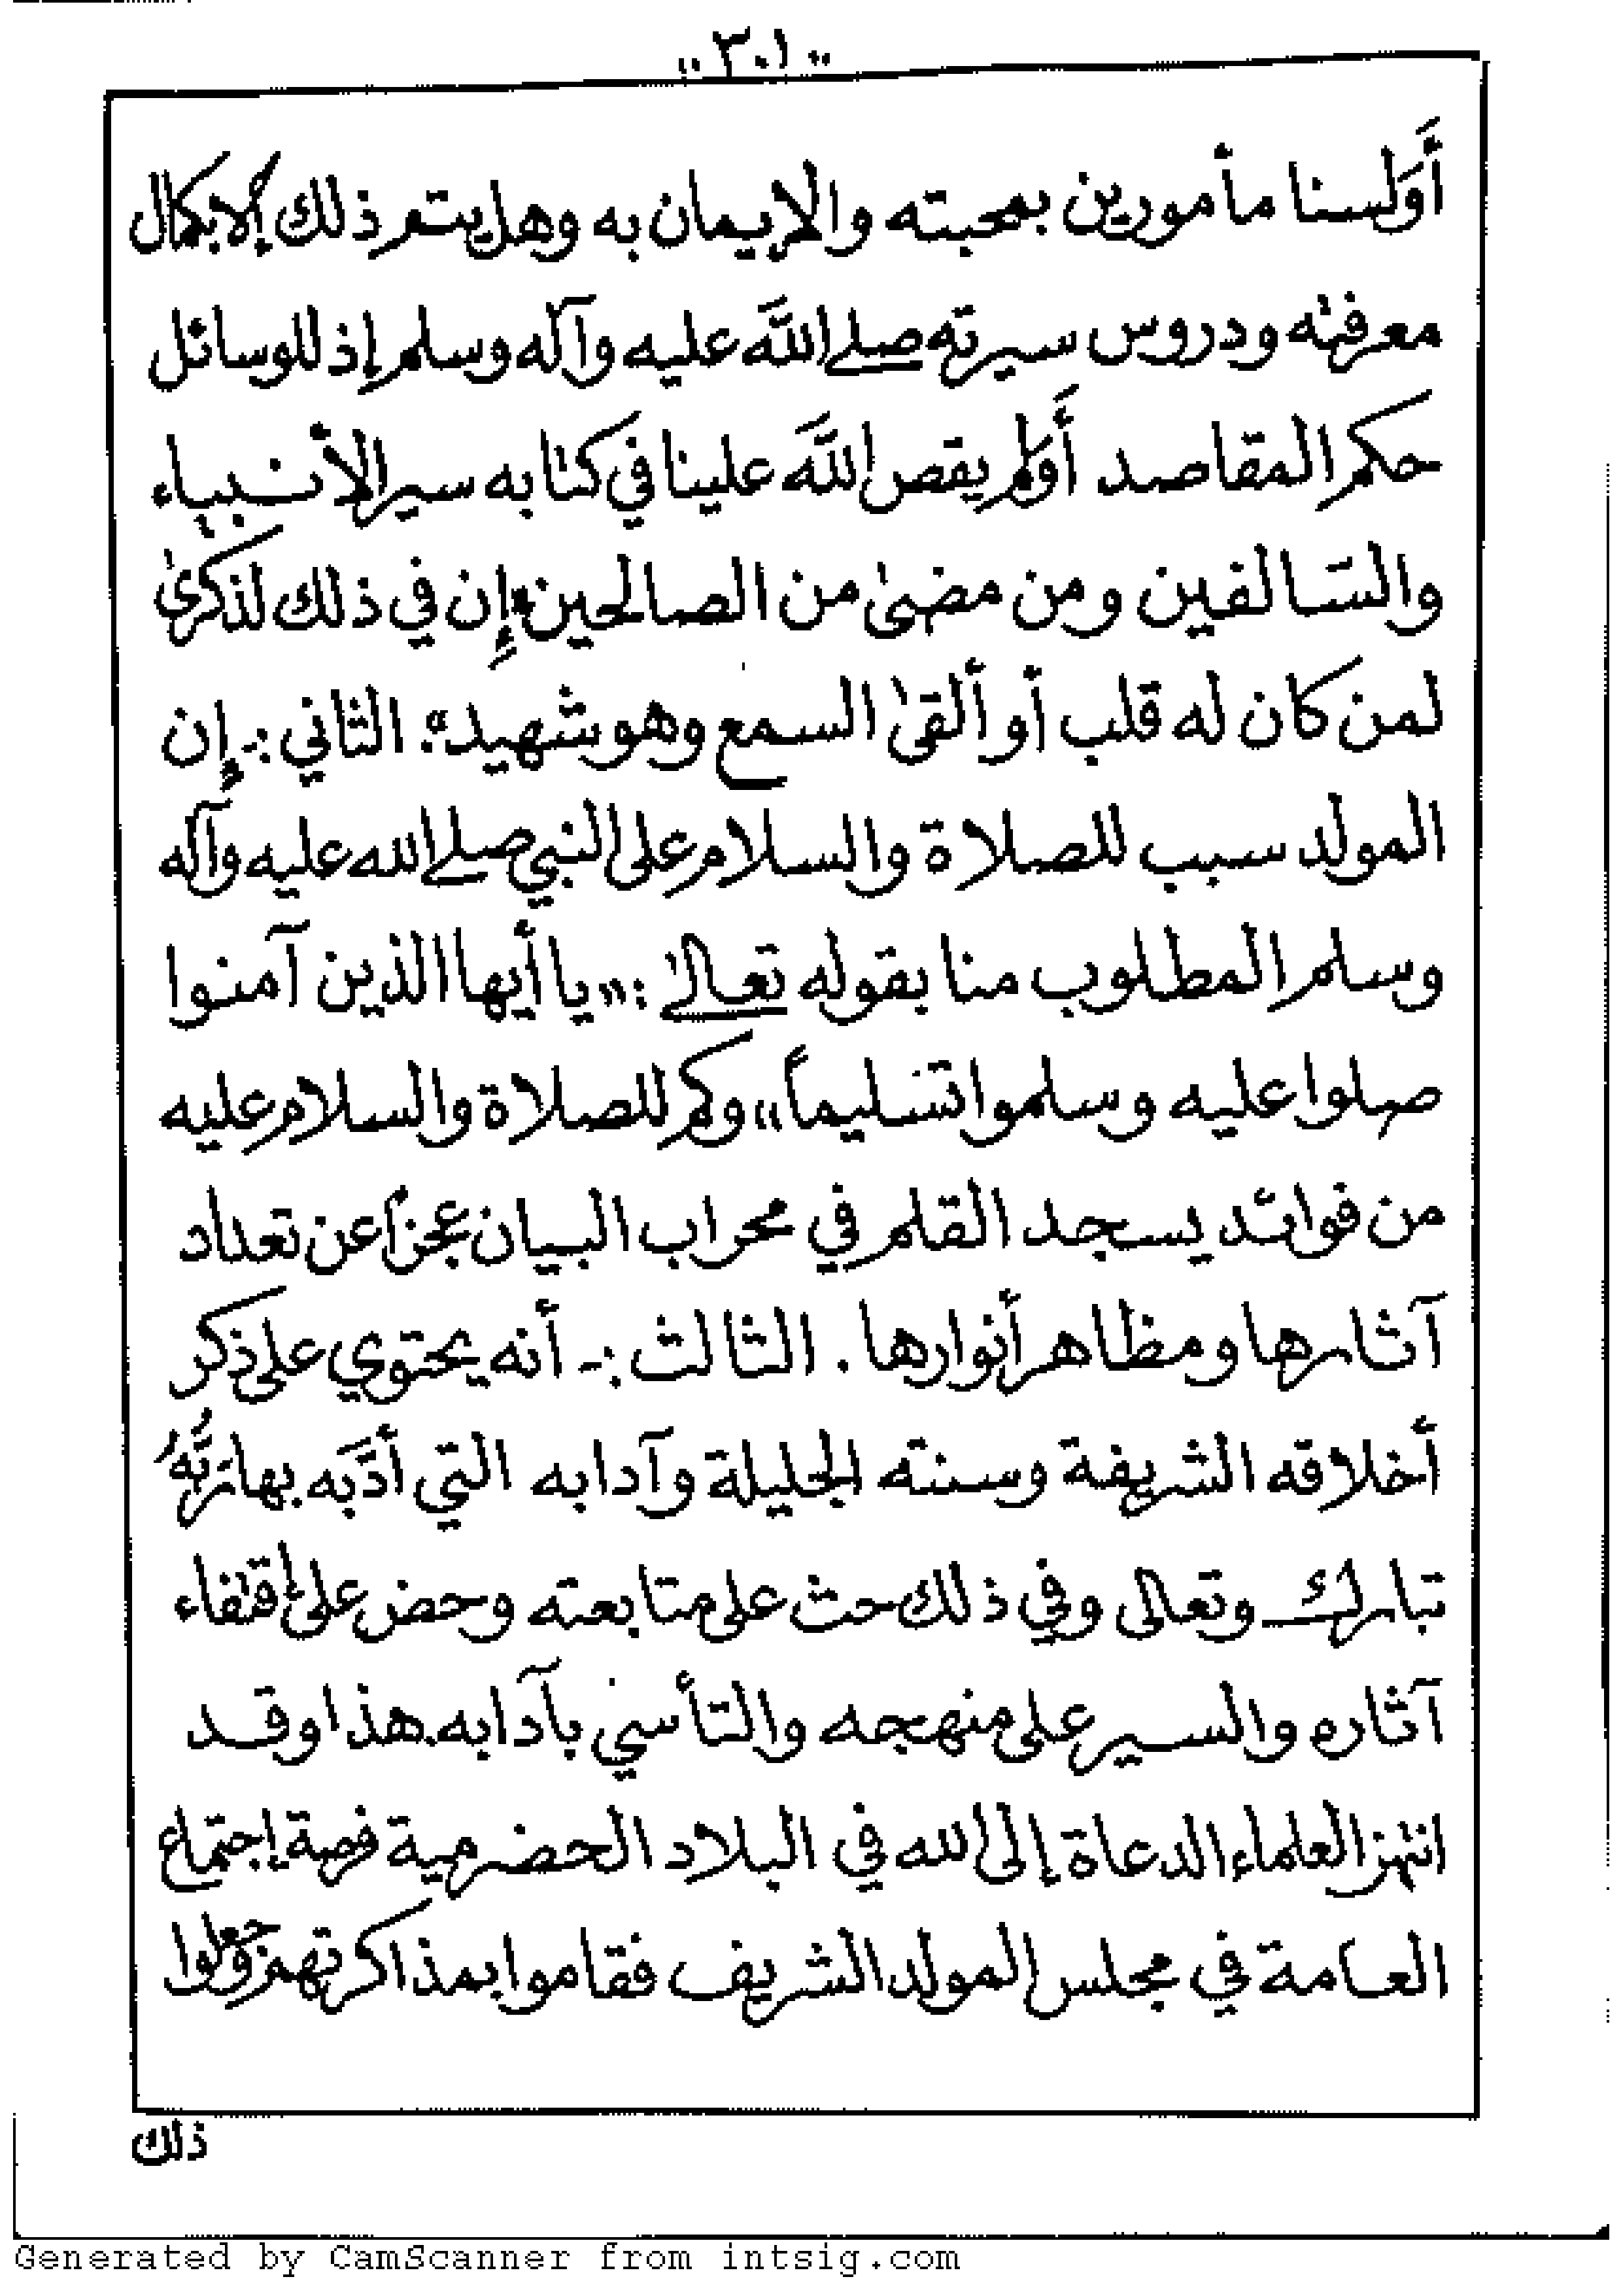 ٣٠١
أَوَلسنا مأمورين بمحبته والإيمان به وهل يتم ذلك إلا بكمال
معرفته ودروس سيرته صلى اللَّه عليه وآله وسلم إذ للوسائل
حكم المقاصد أَوَلم يقص اللَّه علينا في كتابه سير الأنبياء
والسالفين ومن مضى من الصالحين «إن في ذلك لذكرى
لمن كان له قلب أو ألقى السمع وهو شهيد». الثاني :- إن
المولد سبب للصلاة والسلام على النبي صلى الله عليه وآله
وسلم المطلوب منا بقوله تعالى : «يا أيها الذين آمنوا
صلوا عليه وسلموا تسليماً» وكم للصلاة والسلام عليه
من فوائد يسجد القلم في محراب البيان عجزاً عن تعداد
آثارها ومظاهر أنوارها . الثالث :- أنه يحتوي على ذكر
أخلاقه الشريفة وسنته الجليلة وآدابه التي أدَّبه بها ربُّهُ
تبارك وتعالى وفي ذلك حث على متابعته وحض على إقتفاء
آثاره والسير على منهجه والتأسي بآدابه. هذا وقد
انتهز العلماء الدعاة إلى الله في البلاد الحضرمية فرصة إجتماع
العامة في مجلس المولد الشريف فقاموا بمذاكرتهم وجعلوا
ذلك
Generated by CamScanner from intsig.com